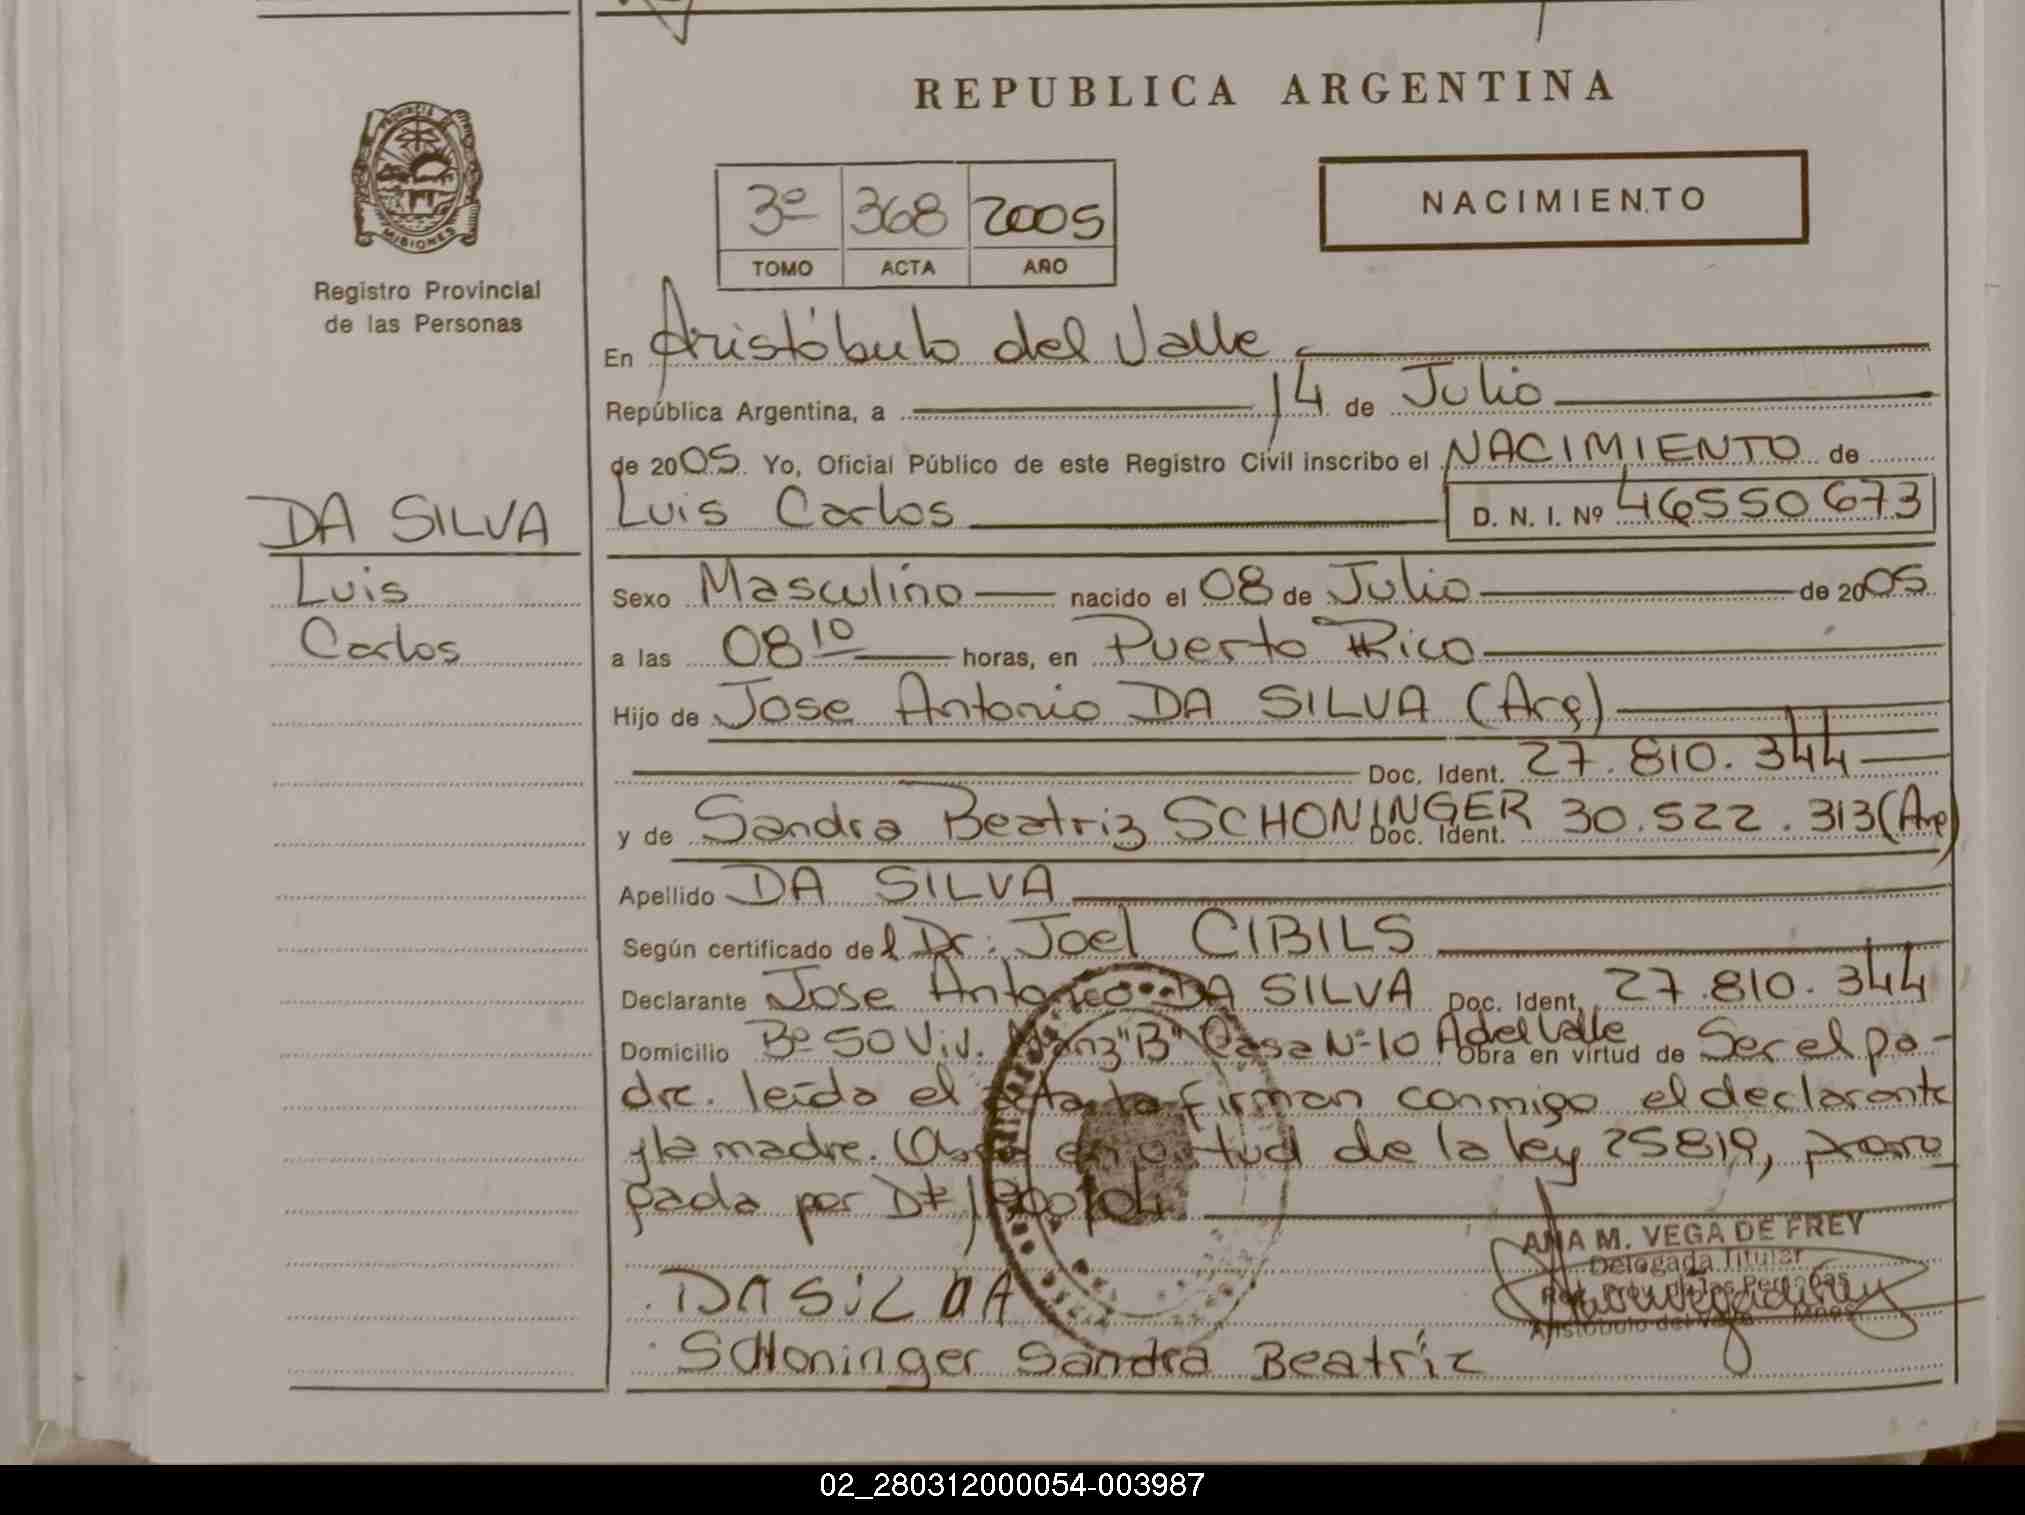 REPUBLICA ARGENTINA
PROVINCIA
MISIONES
Registro Provincial
de las Personas
3º 368 2005
TOMO ACTA AÑO
NACIMIENTO
En Aristóbulo del Valle
República Argentina, a 14 de Julio
de 2005. Yo, Oficial Público de este Registro Civil inscribo el NACIMIENTO de
Luis Carlos D. N. I. Nº 46550673
DA SILVA
Luis
Carlos
Sexo Masculino nacido el 08 de Julio de 2005
a las 08 10 horas, en Puerto Rico
Hijo de Jose Antonio DA SILVA (Arg)
Doc. Ident. 27.810.344
y de Sandra Beatriz SCHONINGER Doc. Ident. 30.522.313 (Arg)
Apellido DA SILVA
Según certificado del Dr. Joel CIBILS
Declarante Jose Antonio DA SILVA Doc. Ident. 27.810.344
Domicilio Bº 50 Viv. Manz "B" Casa Nº 10 A del Valle Obra en virtud de Ser el pa-
dre. leída el acta la firman conmigo el declarante
y la madre. en virtud de la ley 25819,
gada por
DA SILVA
Schoninger Sandra Beatriz
ANA M. VEGA DE FREY
Delegada Titular
Reg. Prov. de las Personas
Aristóbulo del Valle Mnes
02_280312000054-003987